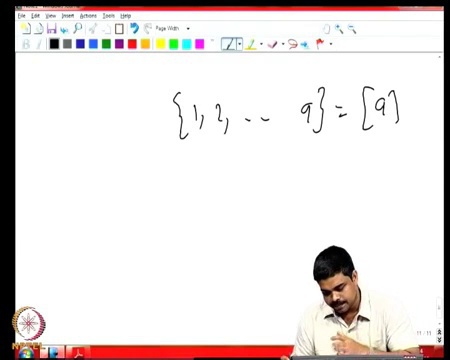 File Edit View Insert Actions Tools Help
Page Width
{1, 2, .. 9} = [9]
11 / 11
NPTEL